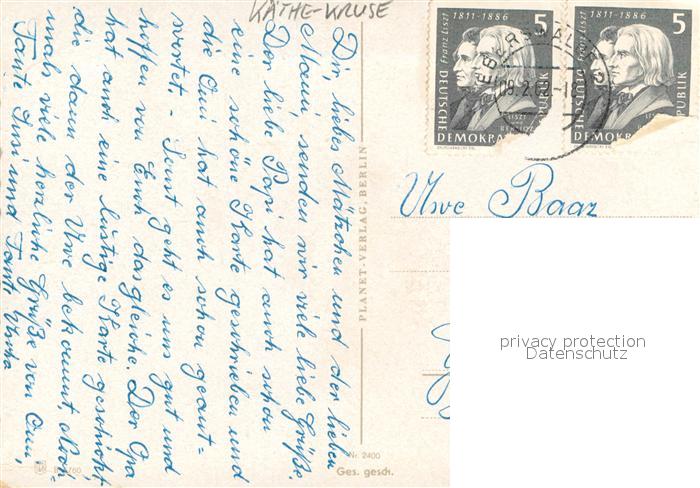 KÄTHE-KRUSE
Dir, liebes Mätzchen und der lieben
Mami, senden wir viele liebe Grüße.
Der liebe Papi hat auch schon
eine schöne Karte geschrieben und
die Omi hat auch schon geant-
wortet. - Sonst geht es uns gut und
hoffen von Euch das gleiche. Der Opa
hat auch eine lustige Karte geschickt
die dann der Uwe bekommt. Noch-
mals viele herzliche Grüße von Omi,
Tante Susi und Tante
PLANET-VERLAG, BERLIN
Nr. 2400
Ges. gesch.
1811-1886 5
Franz Liszt
DEUTSCHE
DEMOKRA
LISZT
BERLIOZ
PUBLIK
1811-1886 5
Franz Liszt
DEUTSCHE
DEMOKRA
PUBLIK
EBERSWALDE
Uwe Baaz
privacy protection
Datenschutz